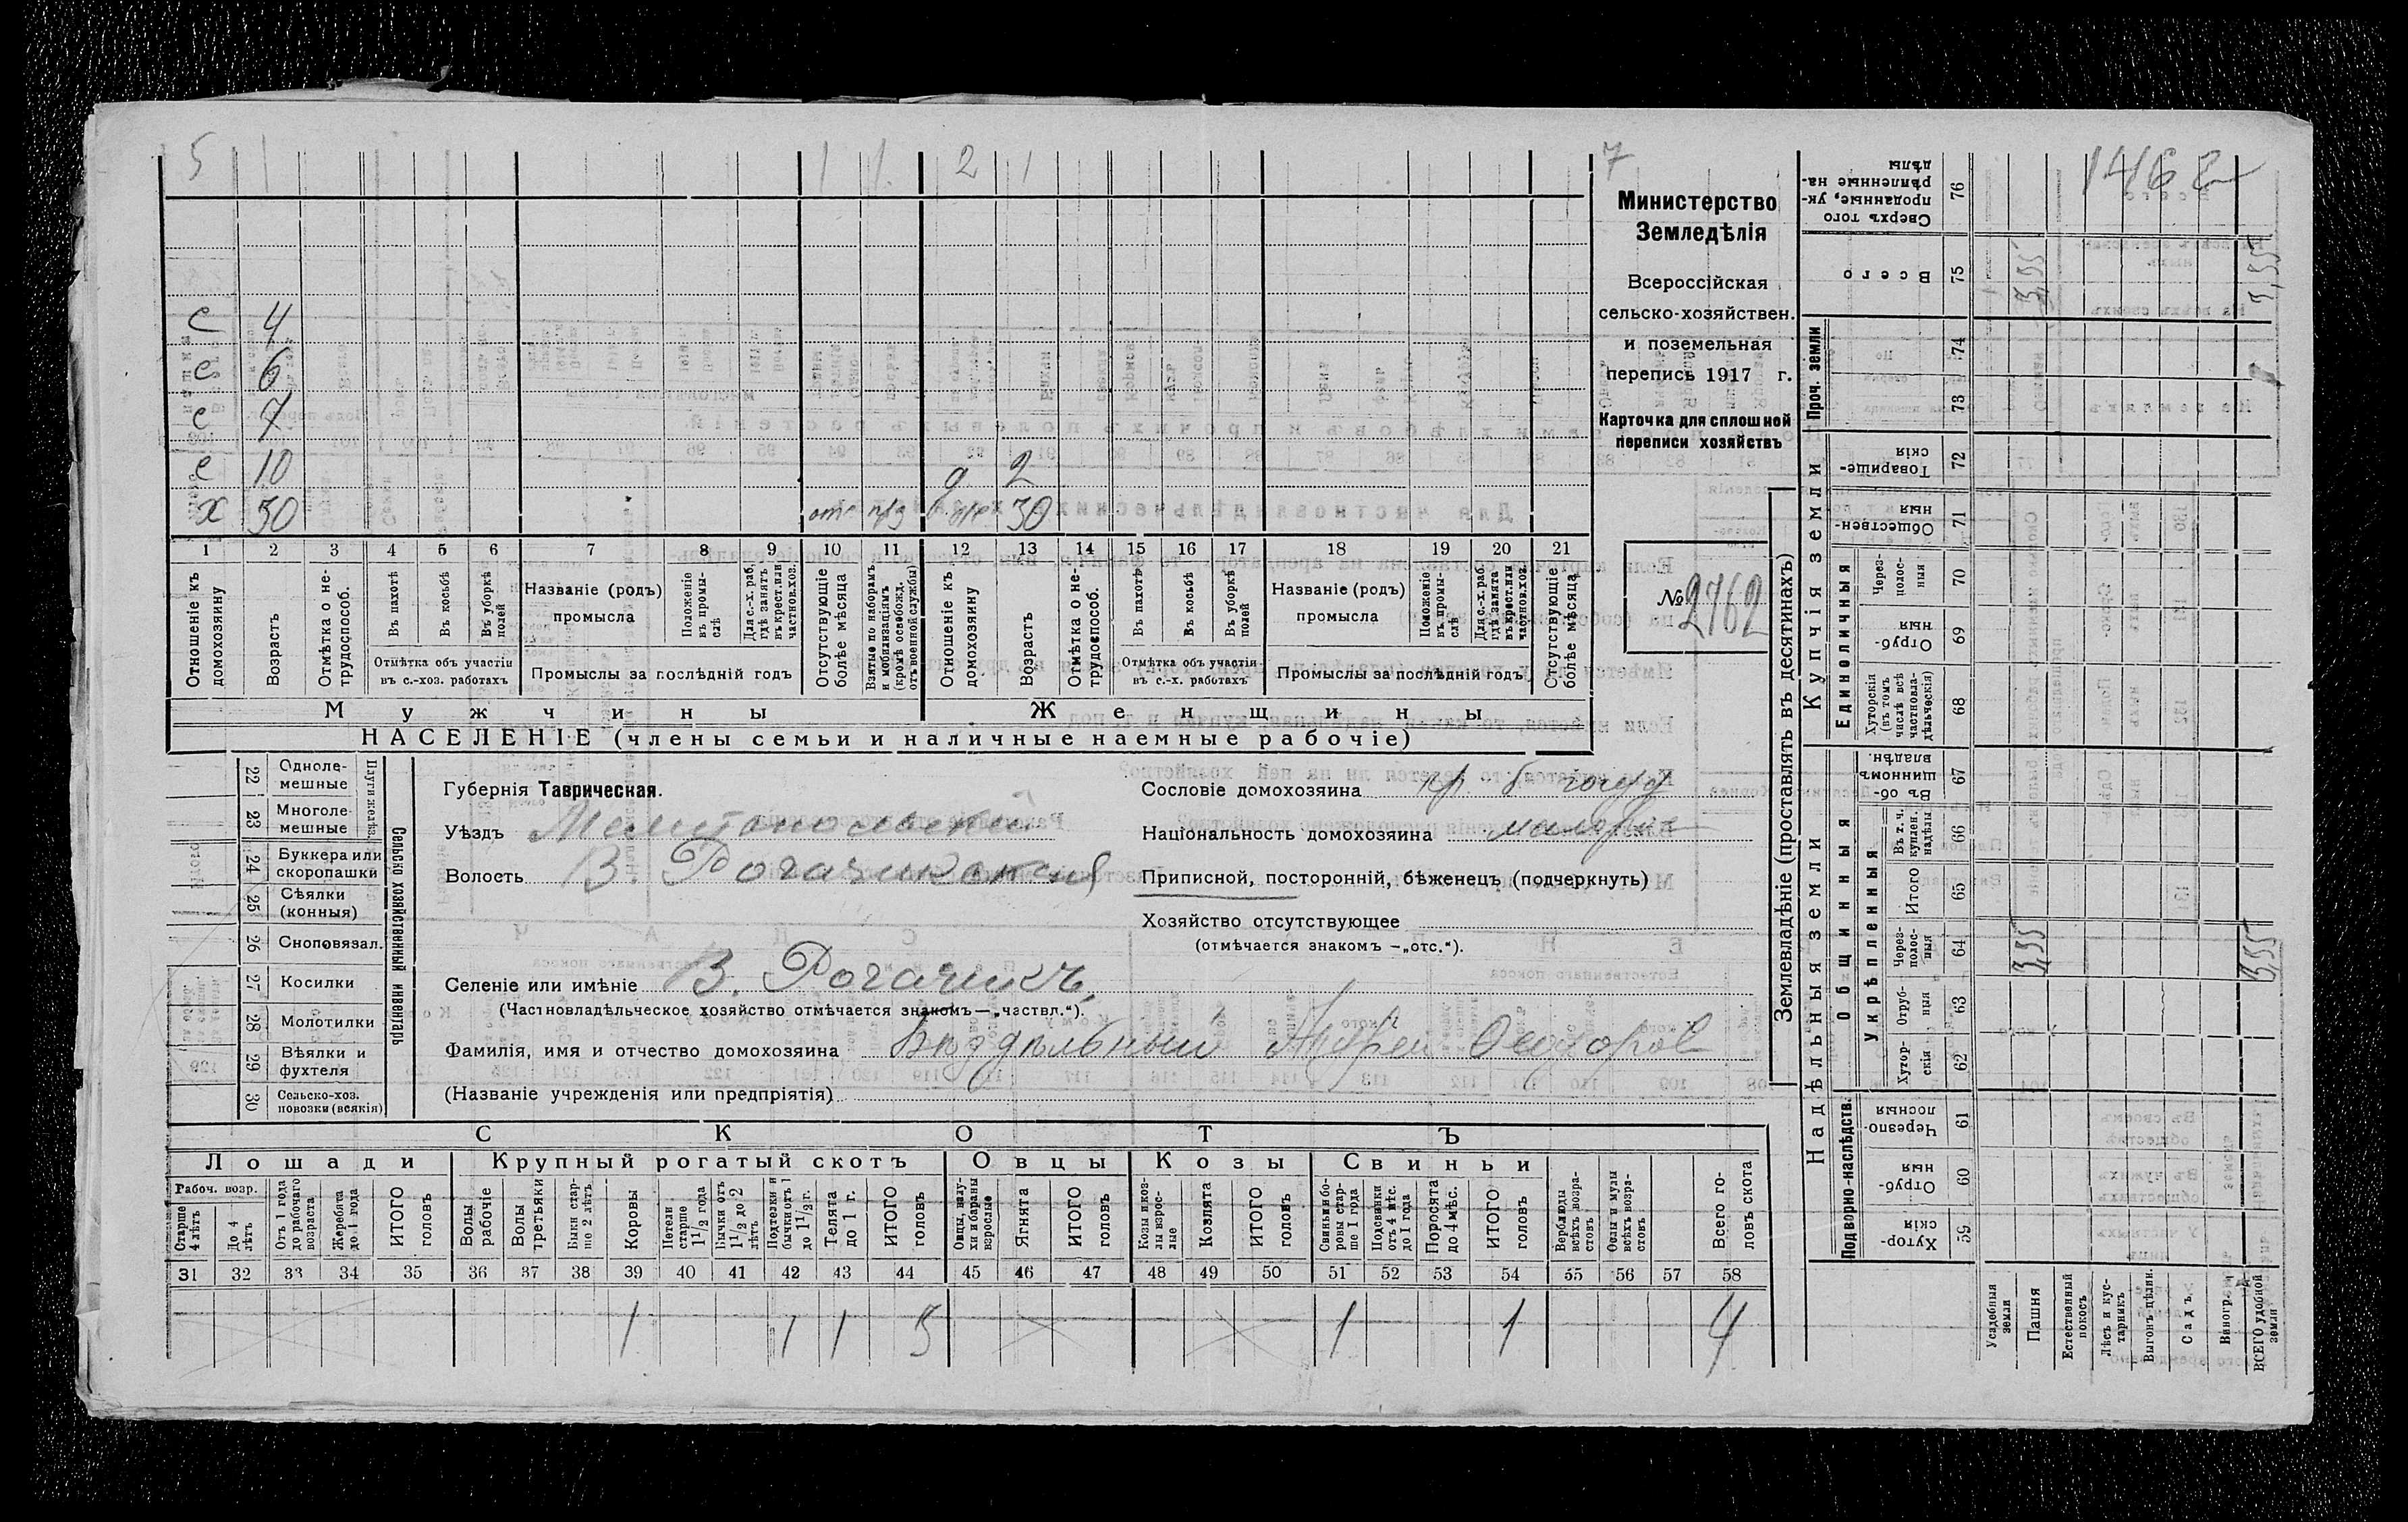 5 1 1 1 2 1 7
1462
с 4
с 6
с 7
с 10 д 2
х 30 отс 30
1 2 3 4 5 6 7 8 9 10 11 12 13 14 15 16 17 18 19 20 21
Отношеніе къ домохозяину
Возрастъ
Отмѣтка о не-трудоспособ.
Въ пахотѣ
Въ косьбѣ
Въ уборкѣ полей
Отмѣтка объ участіи въ с.-хоз. работахъ
Названіе (родъ) промысла
Положеніе въ промы-слѣ
Для с.-х. раб. гдѣ занятъ въ крест. или частнов. хоз.
Промыслы за послѣдній годъ
Отсутствующіе болѣе мѣсяца
Взятые по наборамъ и мобилизаціямъ (кромѣ освобожд. отъ военной службы)
Отношеніе къ домохозяину
Возрастъ
Отмѣтка о не-трудоспособ.
Въ пахотѣ
Въ косьбѣ
Въ уборкѣ полей
Отмѣтка объ участіи въ с.-х. работахъ
Названіе (родъ) промысла
Положеніе въ промы-слѣ
Для с.-х. раб. гдѣ занята въ крест. или частнов. хоз.
Промыслы за послѣдній годъ
Отсутствующіе болѣе мѣсяца
Мужчины
Женщины
НАСЕЛЕНІЕ (члены семьи и наличные наемные рабочіе)
Министерство
Земледѣлія
Всероссійская
сельско-хозяйствен.
и поземельная
перепись 1917 г.
Карточка для сплошной
переписи хозяйствъ
№ 2762
22 Одноле-мешные
23 Многоле-мешные
Плуги желѣз.
24 Буккера или скоропашки
25 Сѣялки (конныя)
26 Сноповязал.
27 Косилки
28 Молотилки
29 Вѣялки и фухтеля
30 Сельско-хоз. повозки (всякія)
Сельско хозяйственный инвентарь
Губернія Таврическая.
Уѣздъ Мелитопольскій
Волость В. Рогачикская
Селеніе или имѣніе В. Рогачикъ
(Частновладѣльческое хозяйство отмѣчается знакомъ—„частвл.“).
Фамилія, имя и отчество домохозяина Бездѣльный Андрей Ѳедоров
(Названіе учрежденія или предпріятія)
Сословіе домохозяина кр
Національность домохозяина малорос
Приписной, посторонній, бѣженецъ (подчеркнуть)
Хозяйство отсутствующее
(отмѣчается знакомъ —„отс.“).
СКОТЪ
Лошади
Крупный рогатый скотъ
Овцы
Козы
Свиньи
Рабоч. возр.
Старше 4 лѣтъ
До 4 лѣтъ
Отъ 1 года до рабочаго возраста
Жеребята до 1 года
ИТОГО головъ
Волы рабочіе
Волы третьяки
Быки стар-ше 2 лѣтъ
Коровы
Нетели старше 1½ года
Бычки отъ 1½ до 2 лѣтъ
Подтелки и бычки отъ 1 до 1½ г.
Телята до 1 г.
ИТОГО головъ
Овцы, валу-хи и бараны взрослые
Ягнята
ИТОГО головъ
Козы и коз-лы взрос-лые
Козлята
ИТОГО головъ
Свиньи и бо-ровы стар-ше 1 года
Подсвинки отъ 4 мѣс. до 1 года
Поросята до 4 мѣс.
ИТОГО головъ
Верблюды всѣхъ возра-стовъ
Ослы и мулы всѣхъ возра-стовъ
Всего го-ловъ скота
31 32 33 34 35 36 37 38 39 40 41 42 43 44 45 46 47 48 49 50 51 52 53 54 55 56 57 58
1 1 1 3 1 1 4
Землевладѣніе (проставлять въ десятинахъ)
Сверхъ того проданные, ук-рѣпленные на-дѣлы 76
Всего 75 3,55 3,55
Купчія земли
Проч. земли
74
73
Товарище-скія 72
Обществен-ныя 71
Единоличныя
Через-полос-ныя 70
Отруб-ныя 69
Хуторскія (въ томъ числѣ всѣ частновла-дѣльческія) 68
Надѣльныя земли
Общинныя
Въ об-щинномъ владѣн. 67
Укрѣпленныя
Въ т. ч. куплен. надѣлы 66
Итого 65
Через-полос-ныя 64 3,55 3,55
Отруб-ныя 63
Хутор-скія 62
Подворно-наслѣдств.
Черезпо-лосныя 61
Отруб-ныя 60
Хутор-скія 59
Усадебныя земли
Пашня
Естественный покосъ
Лѣсъ и кус-тарникъ
Выгонъ, цѣлин.
Садъ
Виногр.
ВСЕГО удобной земли